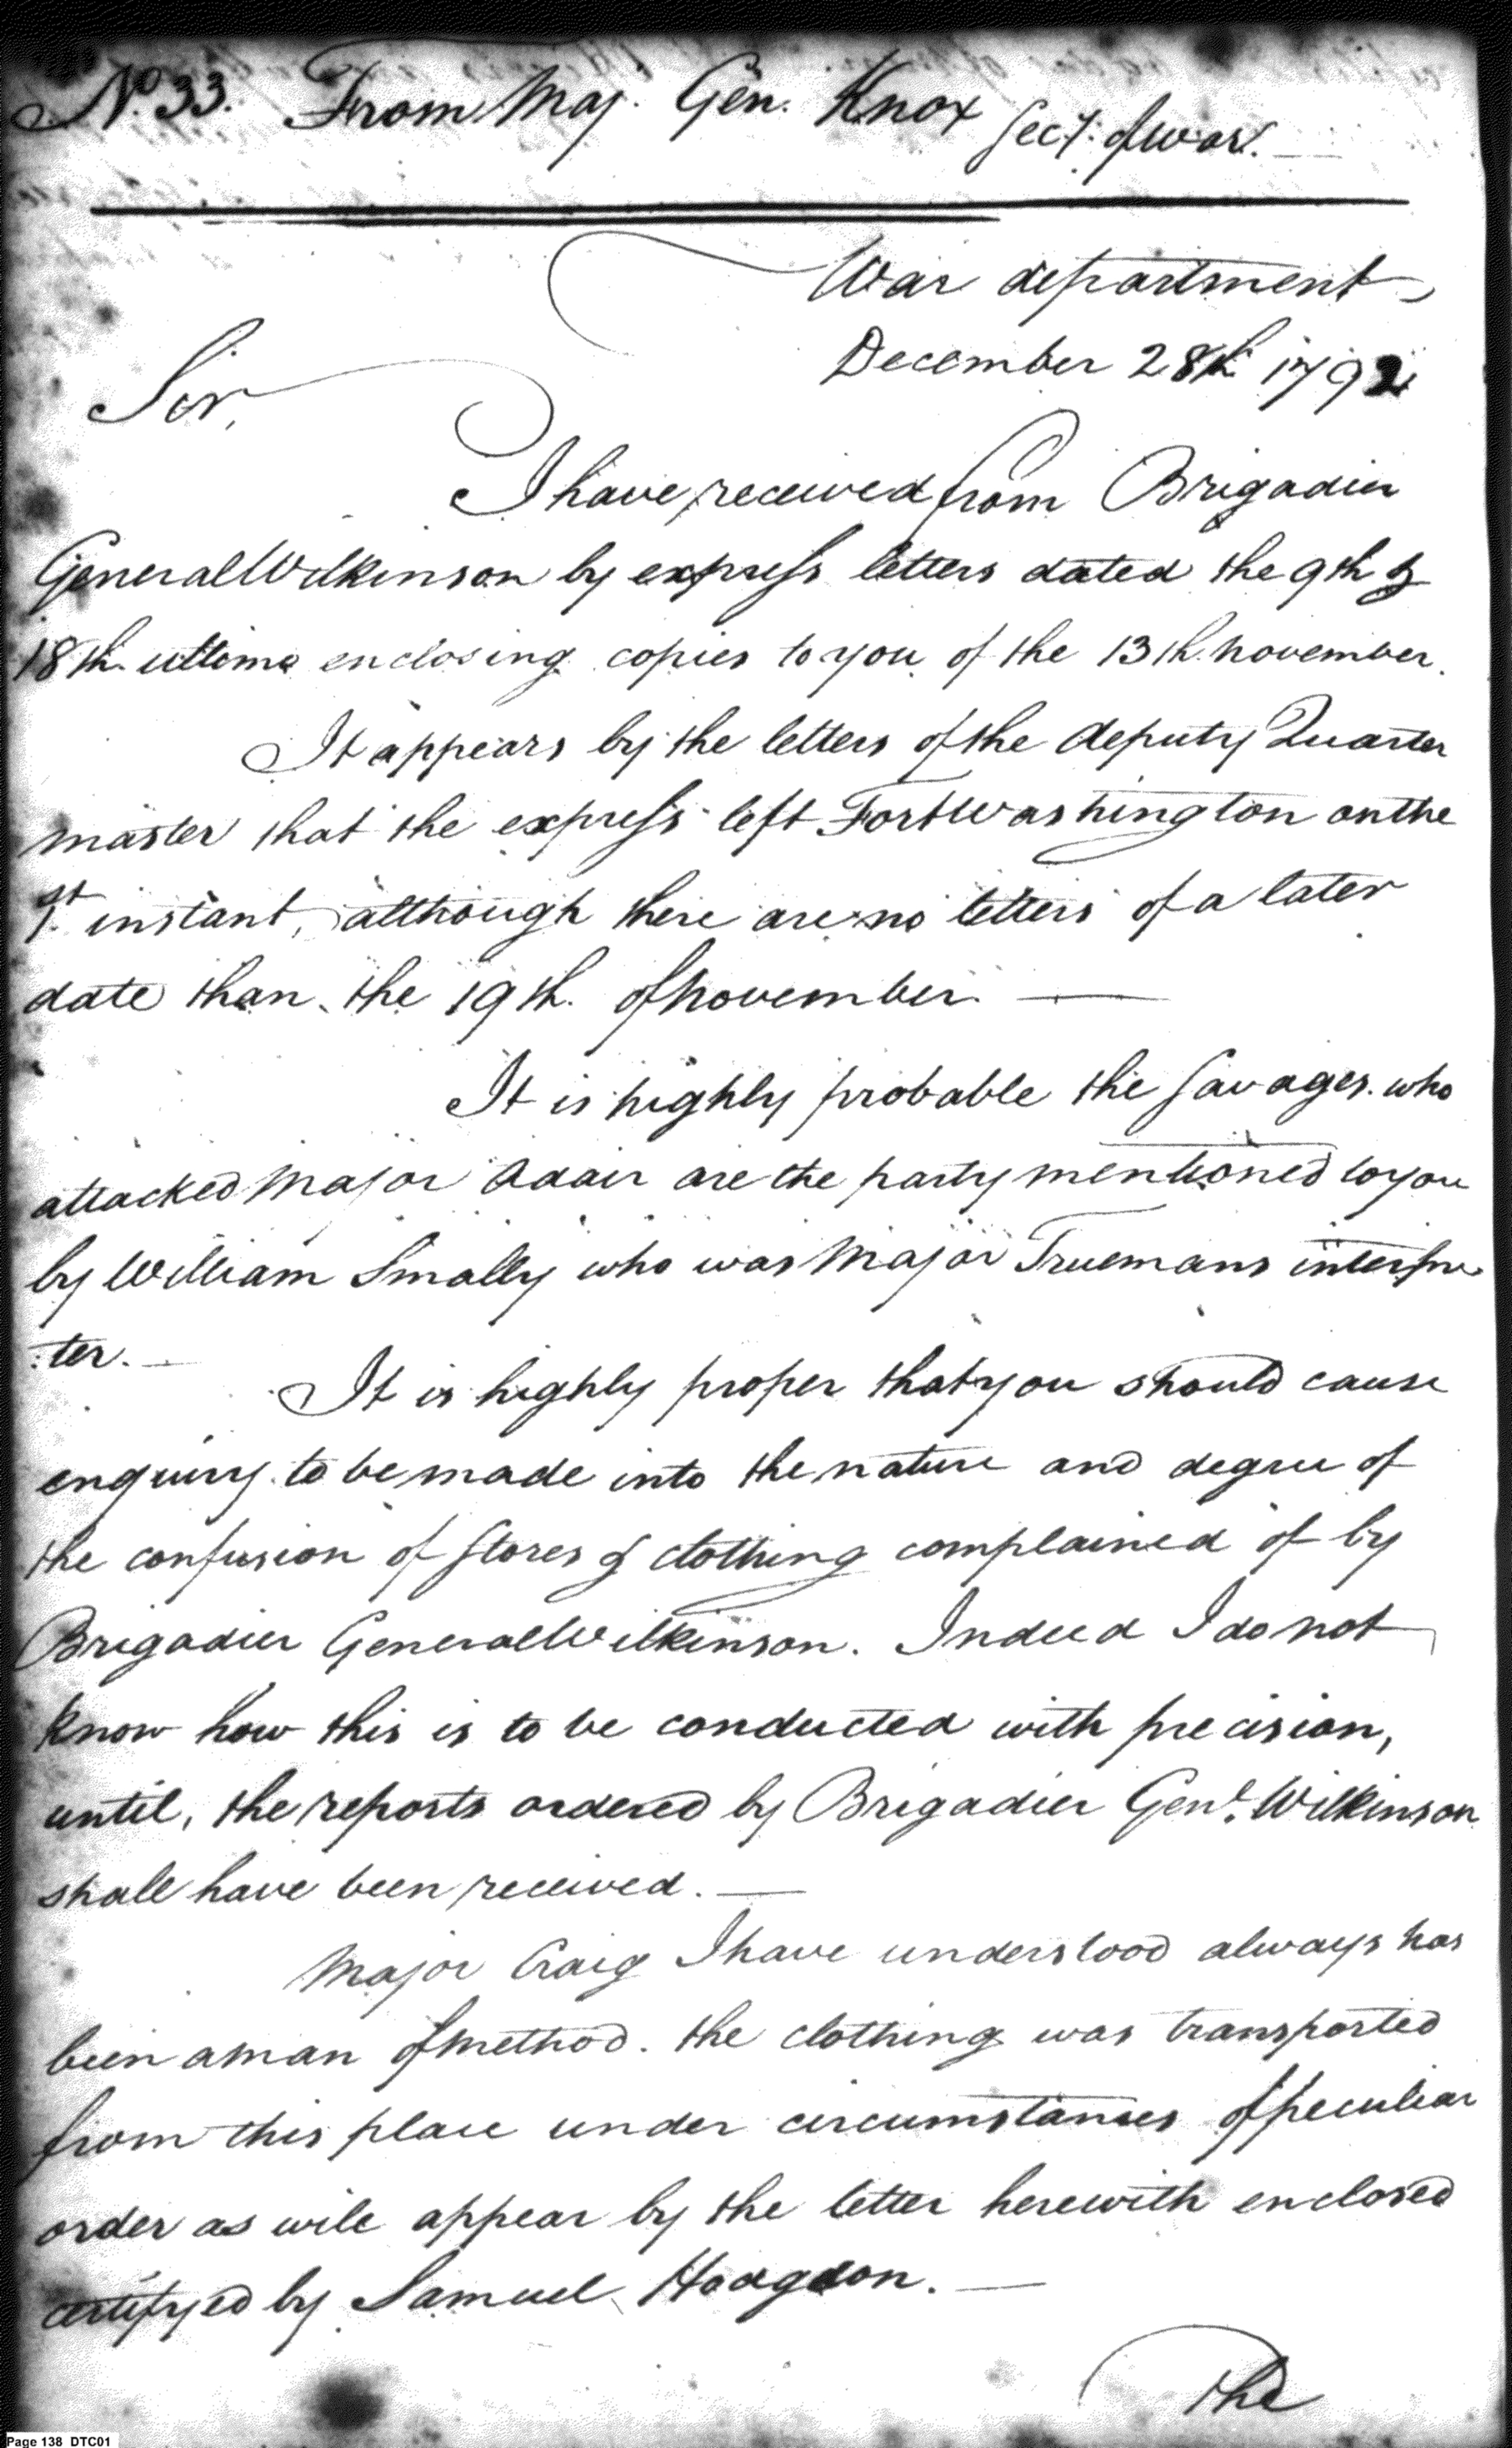 No. 33. From Maj. Gen. Knox Secy. of war.
War department
December 28th 1792
Sir,
I have received from Brigadier
General Wilkinson by express letters dated the 9th &
18th ultimo enclosing copies to you of the 13th. november.
It appears by the letters of the deputy Quarter
master that the express left Fort Washington on the
1st instant, although there are no letters of a later
date than the 19th. of november. —
It is highly probable the savages who
attacked Major Adair are the party mentioned to you
by William Smally who was Major Truemans interpre
:ter. —
It is highly proper that you should cause
enquiry to be made into the nature and degree of
the confusion of stores & clothing complained of by
Brigadier General Wilkinson. Indeed I do not
know how this is to be conducted with precision,
until, the reports ordered by Brigadier Genl. Wilkinson
shall have been received. —
Major Craig I have understood always has
been a man of method. the clothing was transported
from this place under circumstances of peculiar
order as will appear by the letter herewith enclosed
certifyed by Samuel Hodgdon. —
The
Page 138 DTC01